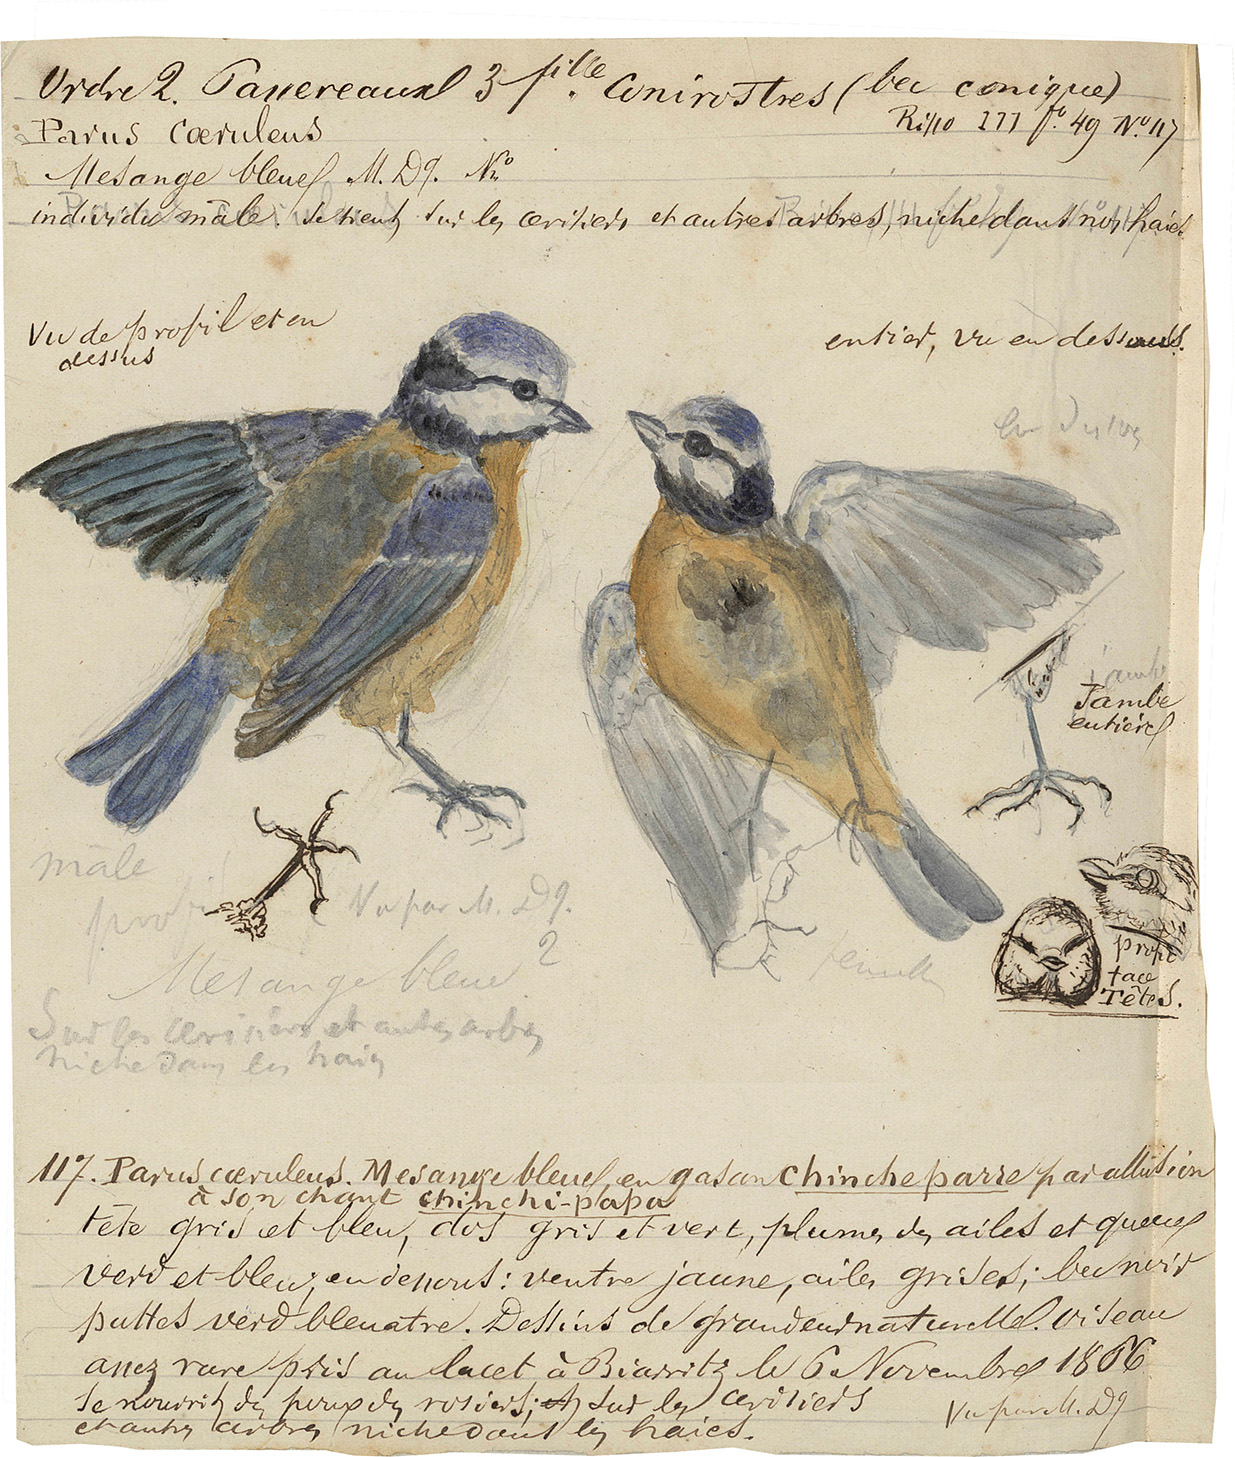 Ordre 2. Passereaux 3 fille. Conirostres (bec conique)
Parus Cœruleus
Risso III f.º 49 N.º 117
Mesange bleue M. Dg. Nº
individu mâle. se tient sur les cerisiers et autres arbres, niche dans nos haies
Vu de profil et en
dessus
entier, vu en dessous.
Jambe
entière
mâle
profil
Vu par M. Dg.
2
Mesange bleue
femelle
Sur les cerisiers et autres arbres
niche dans les haies
profil
face
Têtes.
117. Parus cœruleus. Mesange bleue, en gascon chincheparre par allusion
à son chant chinchi-papa
tête gris et bleu, dos gris et vert, plumes des ailes et queue
verd et bleu; en dessous: ventre jaune, ailes grises; bec noir
pattes verd bleuatre. Dessins de grandeur naturelle. oiseau
assez rare pris au lacet à Biarritz le 6 Novembre 1866
se nourrit des poux des rosiers; sur les cerisiers
et autres arbres niche dans les haies.
Vu par M. Dg